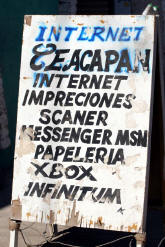 INTERNET
SEACAPAN
INTERNET
IMPRECIONES
SCANER
MESSENGER MSN
PAPELERIA
XBOX
INFINITUM